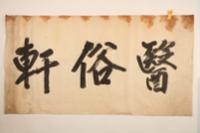 醫俗軒